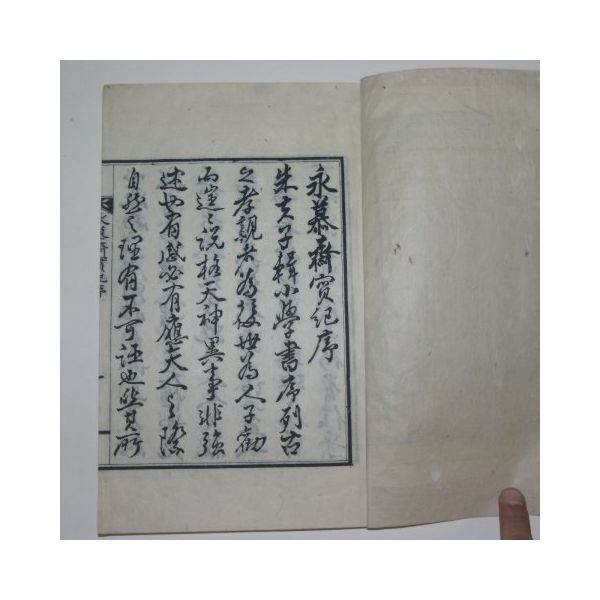 永慕齋實紀序
朱夫子輯小學書序列古
之孝親者爲後世爲人子勸
而邃之說格天神異事非強
述也有感必有應天人之際
自然之理有不可誣也然其所
永慕齋實紀序